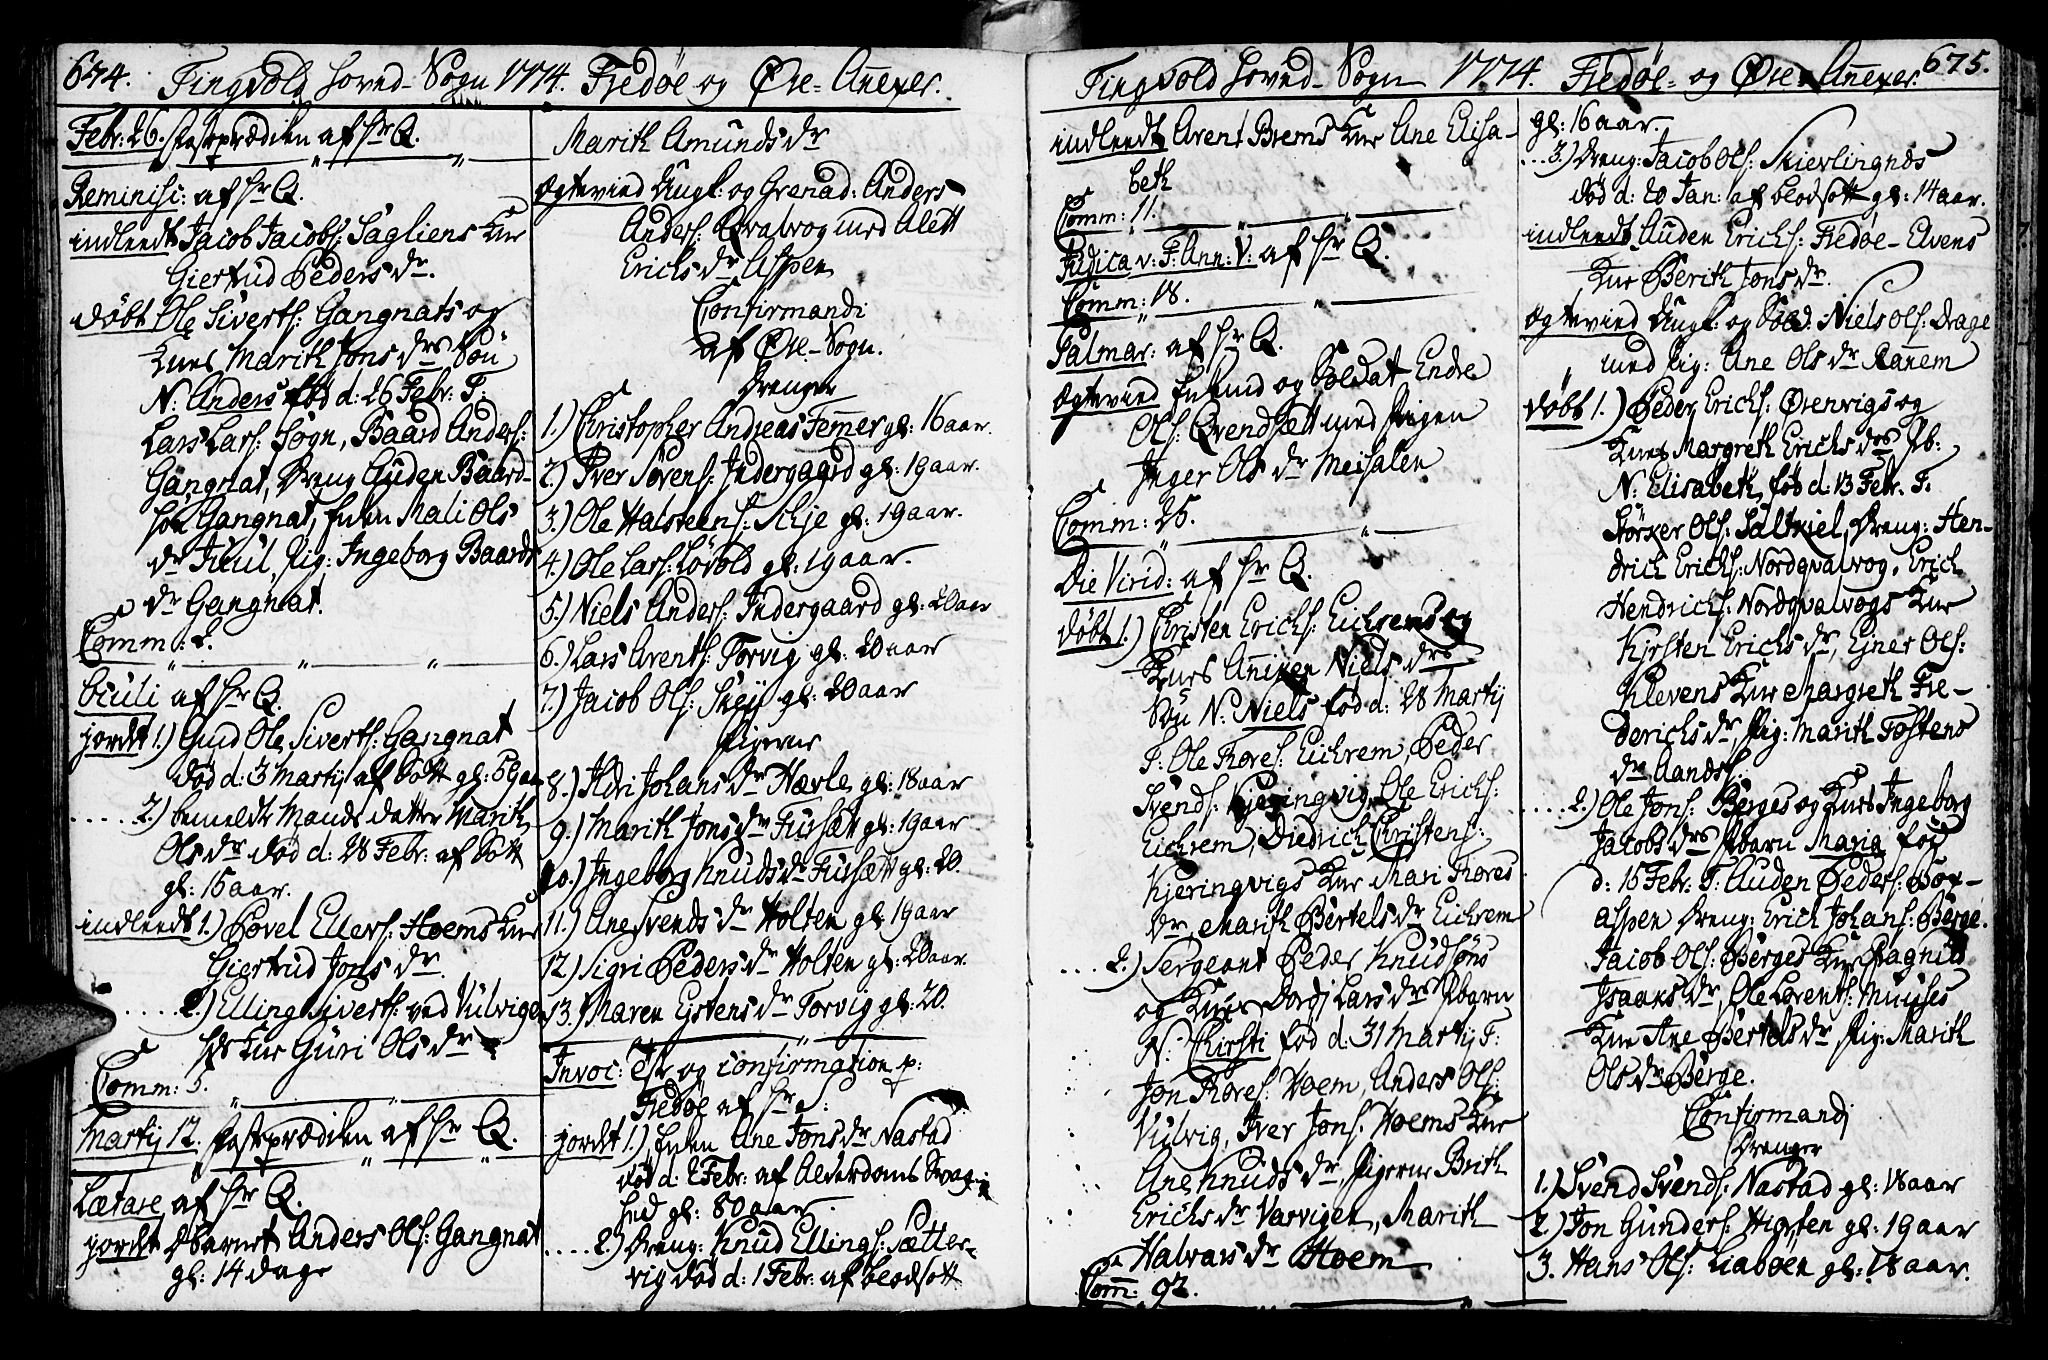 674. Tingvold Hoved-Sogn 1774. Fredøe og Øre-Annexer.
Febr: 26. Fasteprædiken af Hr Q.
Reminisc: af Hr Q.
indleedt Jacob Jacobs: Sagliens Kone
Giertrud Peders dr.
døbt Ole Siverts: Gangnats og
Kones Marith Jons drs Søn
N: Anders fød d: 26 Febr: F:
Lars Lars: Sogn, Baard Anders:
Gangnat, Dreng Auden Baard-
søn Gangnat, Enken Mali Ols
dr Fuul, Pig: Ingeborg Baards
dr Gangnat.
Comm: 2.
Oculi af Hr Q.
jordet 1.) Gmd Ole Siverts: Gangnat
død d: 3 Martij af Sott gl: 59 aar
2.) bemeldte Mands datter Marith
Ols dr død d: 28 Febr: af Sott
gl: 16 aar.
indleedt 1.) Povel Ellers: Hoems Kone
Giertrud Jons dr.
2.) Elling Siverts: ved Vulvigen
hs Kone Guri Ols dr
Comm: 5.
Martij 12. Fasteprædiken af Hr Q.
Lætare af Hr Q.
jordet Dbarnet Anders Ols: Gangnat
gl: 14 dage
Marith Amunds dr
Ægtevied Ungk: og Grenad: Anders
Anders: Qvalvog med Alett
Erichs dr Aspen
Confirmandi
af Øre-Sogn.
Drenger
1.) Christopher Andreas Femmer gl: 16 aar.
2.) Iver Sørens: Indergaard gl: 19 aar.
3.) Ole Halsteens: Silje gl: 19 aar.
4.) Ole Lars: Løvold gl: 19 aar.
5.) Niels Anders: Indergaard gl: 20 aar
6.) Lars Arents: Torvig gl: 20 aar
7.) Jacob Ols: Skeij gl: 20 aar
Pigerne
8.) Adri Johans dr Hærle gl: 18 aar
9.) Marith Jons dr Fursæt gl: 19 aar
10.) Ingeborg Knuds dr Fursætt gl: 20.
11.) Ane Svends dr Holten gl: 19 aar
12.) Sigri Peders dr Holten gl: 20 aar.
13.) Maren Ejstens dr Torvig gl: 20.
Invoc: Tjr og confirmation p:
Fredøe af Hr S:
jordet 1.) Enken Ane Jons dr Nastad
død d: 2 Febr: af Alderdoms Svag-
hed gl: 80 aar
2.) Dreng: Knud Ellings: Sætter-
vig død d: 1 Febr: af blodsott
Tingvold Hoved-Sogn 1774. Fredøe- og Øre-Annexer. 675.
indleedt Arent Brems Kone Ane Elisa-
beth
Comm: 11.
Judica v: F: Ann: V: af Hr Q.
Comm: 18.
Palmar: af Hr Q.
Ægtevied Enkemd og Soldat Endre
Ols: Qvendsætt med Pigen
Inger Ols dr Meisalen
Comm: 25.
Die Virid: af Hr Q.
døbt 1.) Christen Erichs: Eichrems og
Kones Anniken Niels drs
Søn N: Niels fød d: 28 Martij
F: Ole Tores: Eichrem, Peder
Svends: Kjeringvig, Ole Erichs:
Eichrem, Diedrich Christens:
Kjeringvigs Kone Mari Tores
dr, Marith Bertels dr Eichrem
2.) Sergeant Peder Knudsøns
og Kones Dordj Lars drs Dbarn
N: Chirsti fød d: 31 Martij F:
Jon Tores: Hoem, Anders Ols:
Vulvig, Iver Jons: Hoems Kone
Ane Knuds dr, Pigerne Brith
Erichs dr Varvigen, Marith
Halvars dr Hoem
Comm: 92.
gl: 16 aar.
3.) Dreng: Jacob Ols: Skierlingnes
død d: 20 Jan: af blodsott gl: 14 aar.
indleedt Auden Erichs: Fredøe-Elvens
Kone Berith Jons dr.
Ægtevied Ungk: og Sold: Niels Ols: Drage
med Pig: Ane Ols dr Rannem
døbt 1.) Peder Erichs: Ørenvigs og
Kones Margreth Erichs drs Pb:
N: Elisabeth, fød d: 13 Febr: F:
Størker Ols: Saltkiel, Dreng: Hen-
drich Erichs: Nordqvalvog, Erich
Hendrichs: Nordqvalvogs Kone
Kjrsten Erichs dr, Ejner Ols:
Klevens Kone Margreth Fre-
derichs dr, Pig: Marith Tostens
dr Aands:
2.) Ole Jons: Berges og Kones Ingeborg
Jacobs drs Pbarn Maria fød
d: 16 Febr: F: Auden Peders: Bøx-
aspen Dreng: Erich Johans: Berge.
Jacob Ols: Berges Kone Ragnild
Isaaks dr, Ole Lorents: Muuses
Kone Ane Bertels dr Pig: Marith
Ols dr Berge.
Confirmandj
Drenger
1.) Svend Svends: Nastad gl: 18 aar
2.) Jon Gunders: Hiorten gl: 19 aar
3. Hans Ols: Liabøen gl: 18 aar.